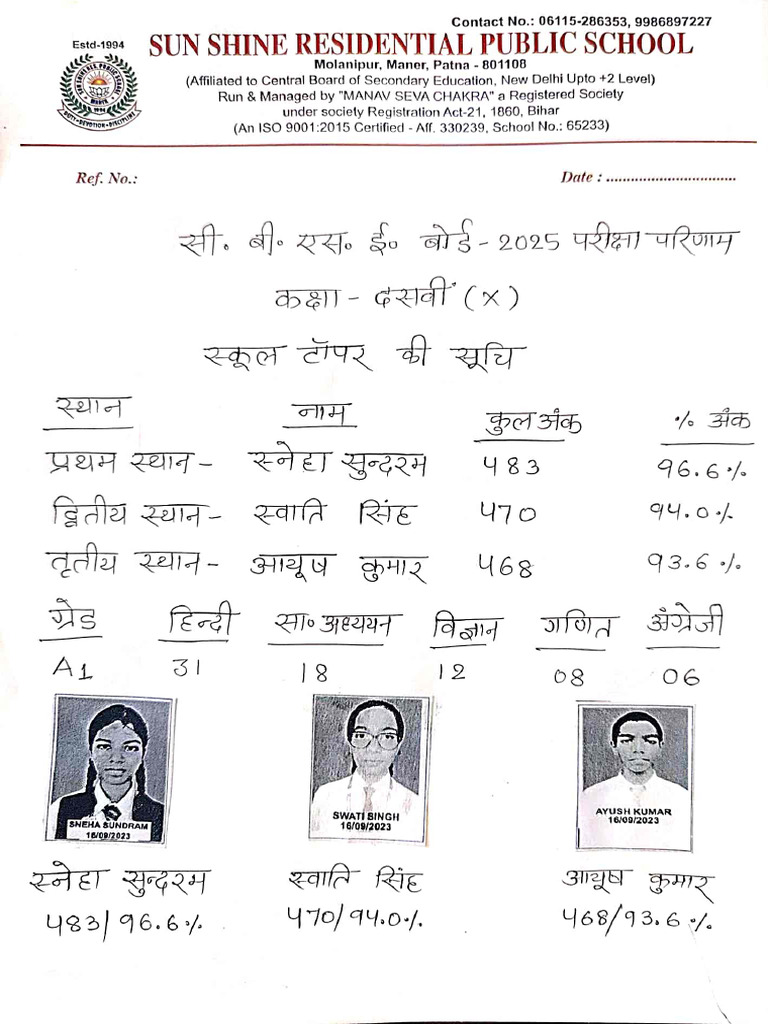 Contact No.: 06115-286353, 9986897227
Estd-1994
SUN SHINE RESIDENTIAL PUBLIC SCHOOL
Molanipur, Maner, Patna - 801108
(Affiliated to Central Board of Secondary Education, New Delhi Upto +2 Level)
Run & Managed by "MANAV SEVA CHAKRA" a Registered Society
under society Registration Act-21, 1860, Bihar
(An ISO 9001:2015 Certified - Aff. 330239, School No.: 65233)
Ref. No.: Date : ................................
सी. बी. एस. ई. बोर्ड - 2025 परीक्षा परिणाम
कक्षा - दसवीं (X)
स्कूल टॉपर की सूचि
स्थान नाम कुल अंक % अंक
प्रथम स्थान - स्नेहा सुन्दरम 483 96.6%
द्वितीय स्थान - स्वाति सिंह 470 94.0%
तृतीय स्थान - आयूष कुमार 468 93.6%
ग्रेड हिन्दी सा० अध्ययन विज्ञान गणित अंग्रेजी
A1 31 18 12 08 06
SNEHA SUNDRAM
16/09/2023
SWATI SINGH
16/09/2023
AYUSH KUMAR
16/09/2023
स्नेहा सुन्दरम स्वाति सिंह आयूष कुमार
483/96.6% 470/94.0% 468/93.6%